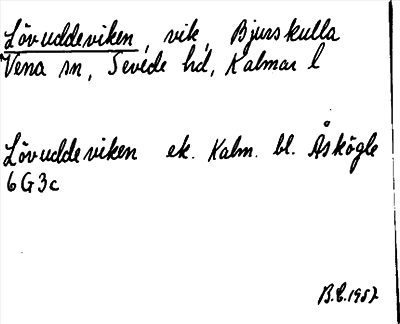 Lövuddeviken, vik, Bjurskulla
Vena sn, Sevede hd, Kalmar l
Lövuddeviken ek. Kalm. bl. Åskögle
6G3c
B.E. 1957